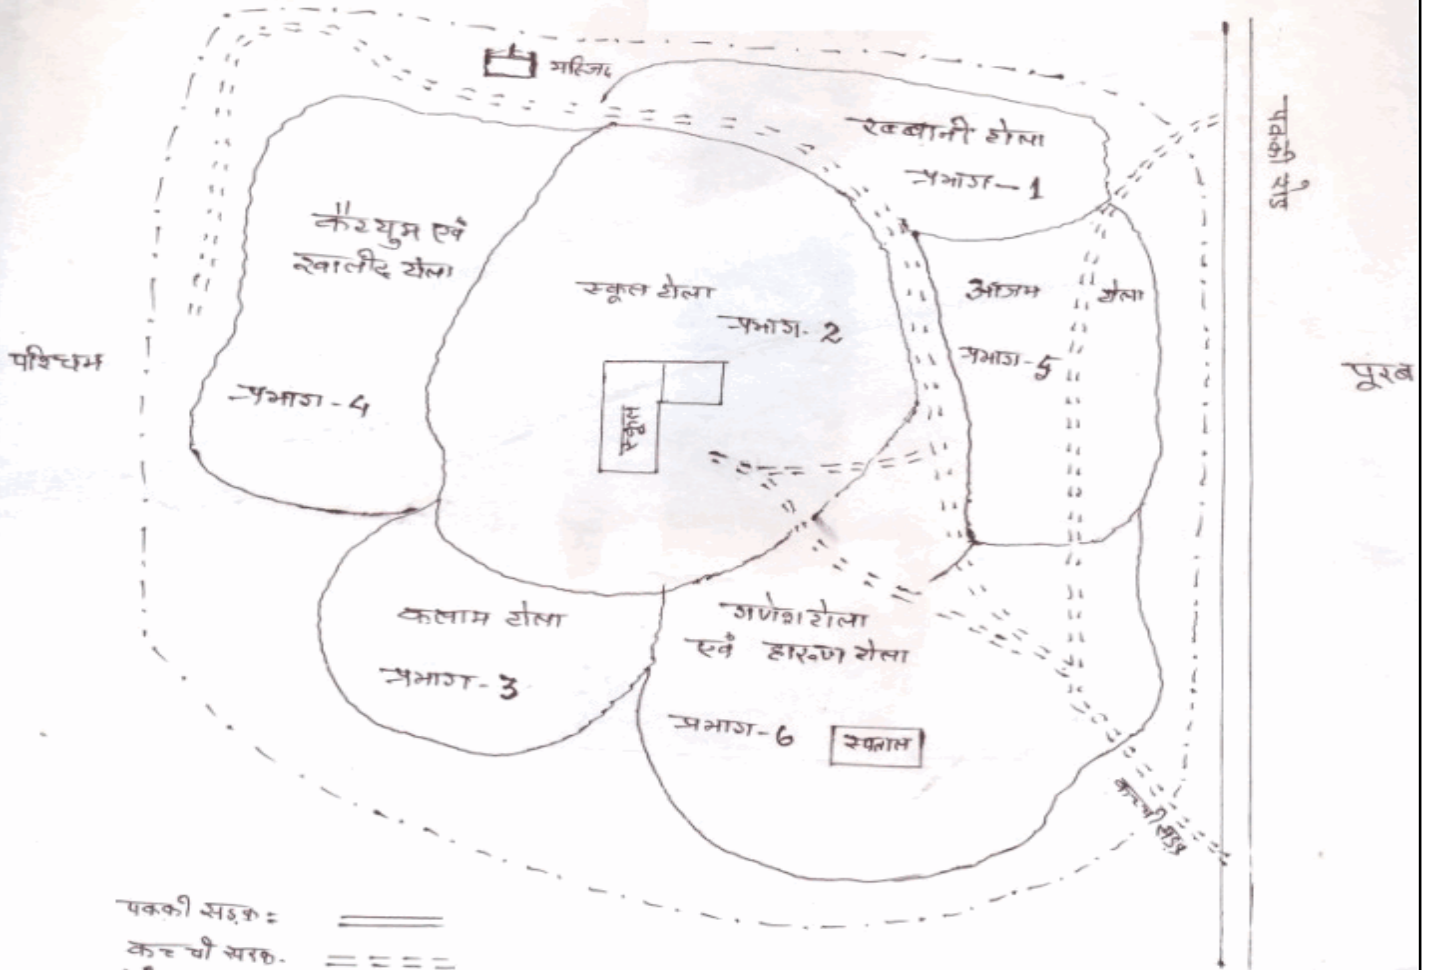 मस्जिद
रब्बानी टोला
प्रभाग-1
पक्की रोड
कैय्युम एवं
खालीद टोला
प्रभाग-4
स्कूल टोला
प्रभाग-2
स्कूल
आजम टोला
प्रभाग-5
पश्चिम
पूरब
कलाम टोला
प्रभाग-3
गणेश टोला
एवं हारूण टोला
प्रभाग-6
स्पताल
कच्ची सड़क
पक्की सड़क =
कच्ची सड़क-